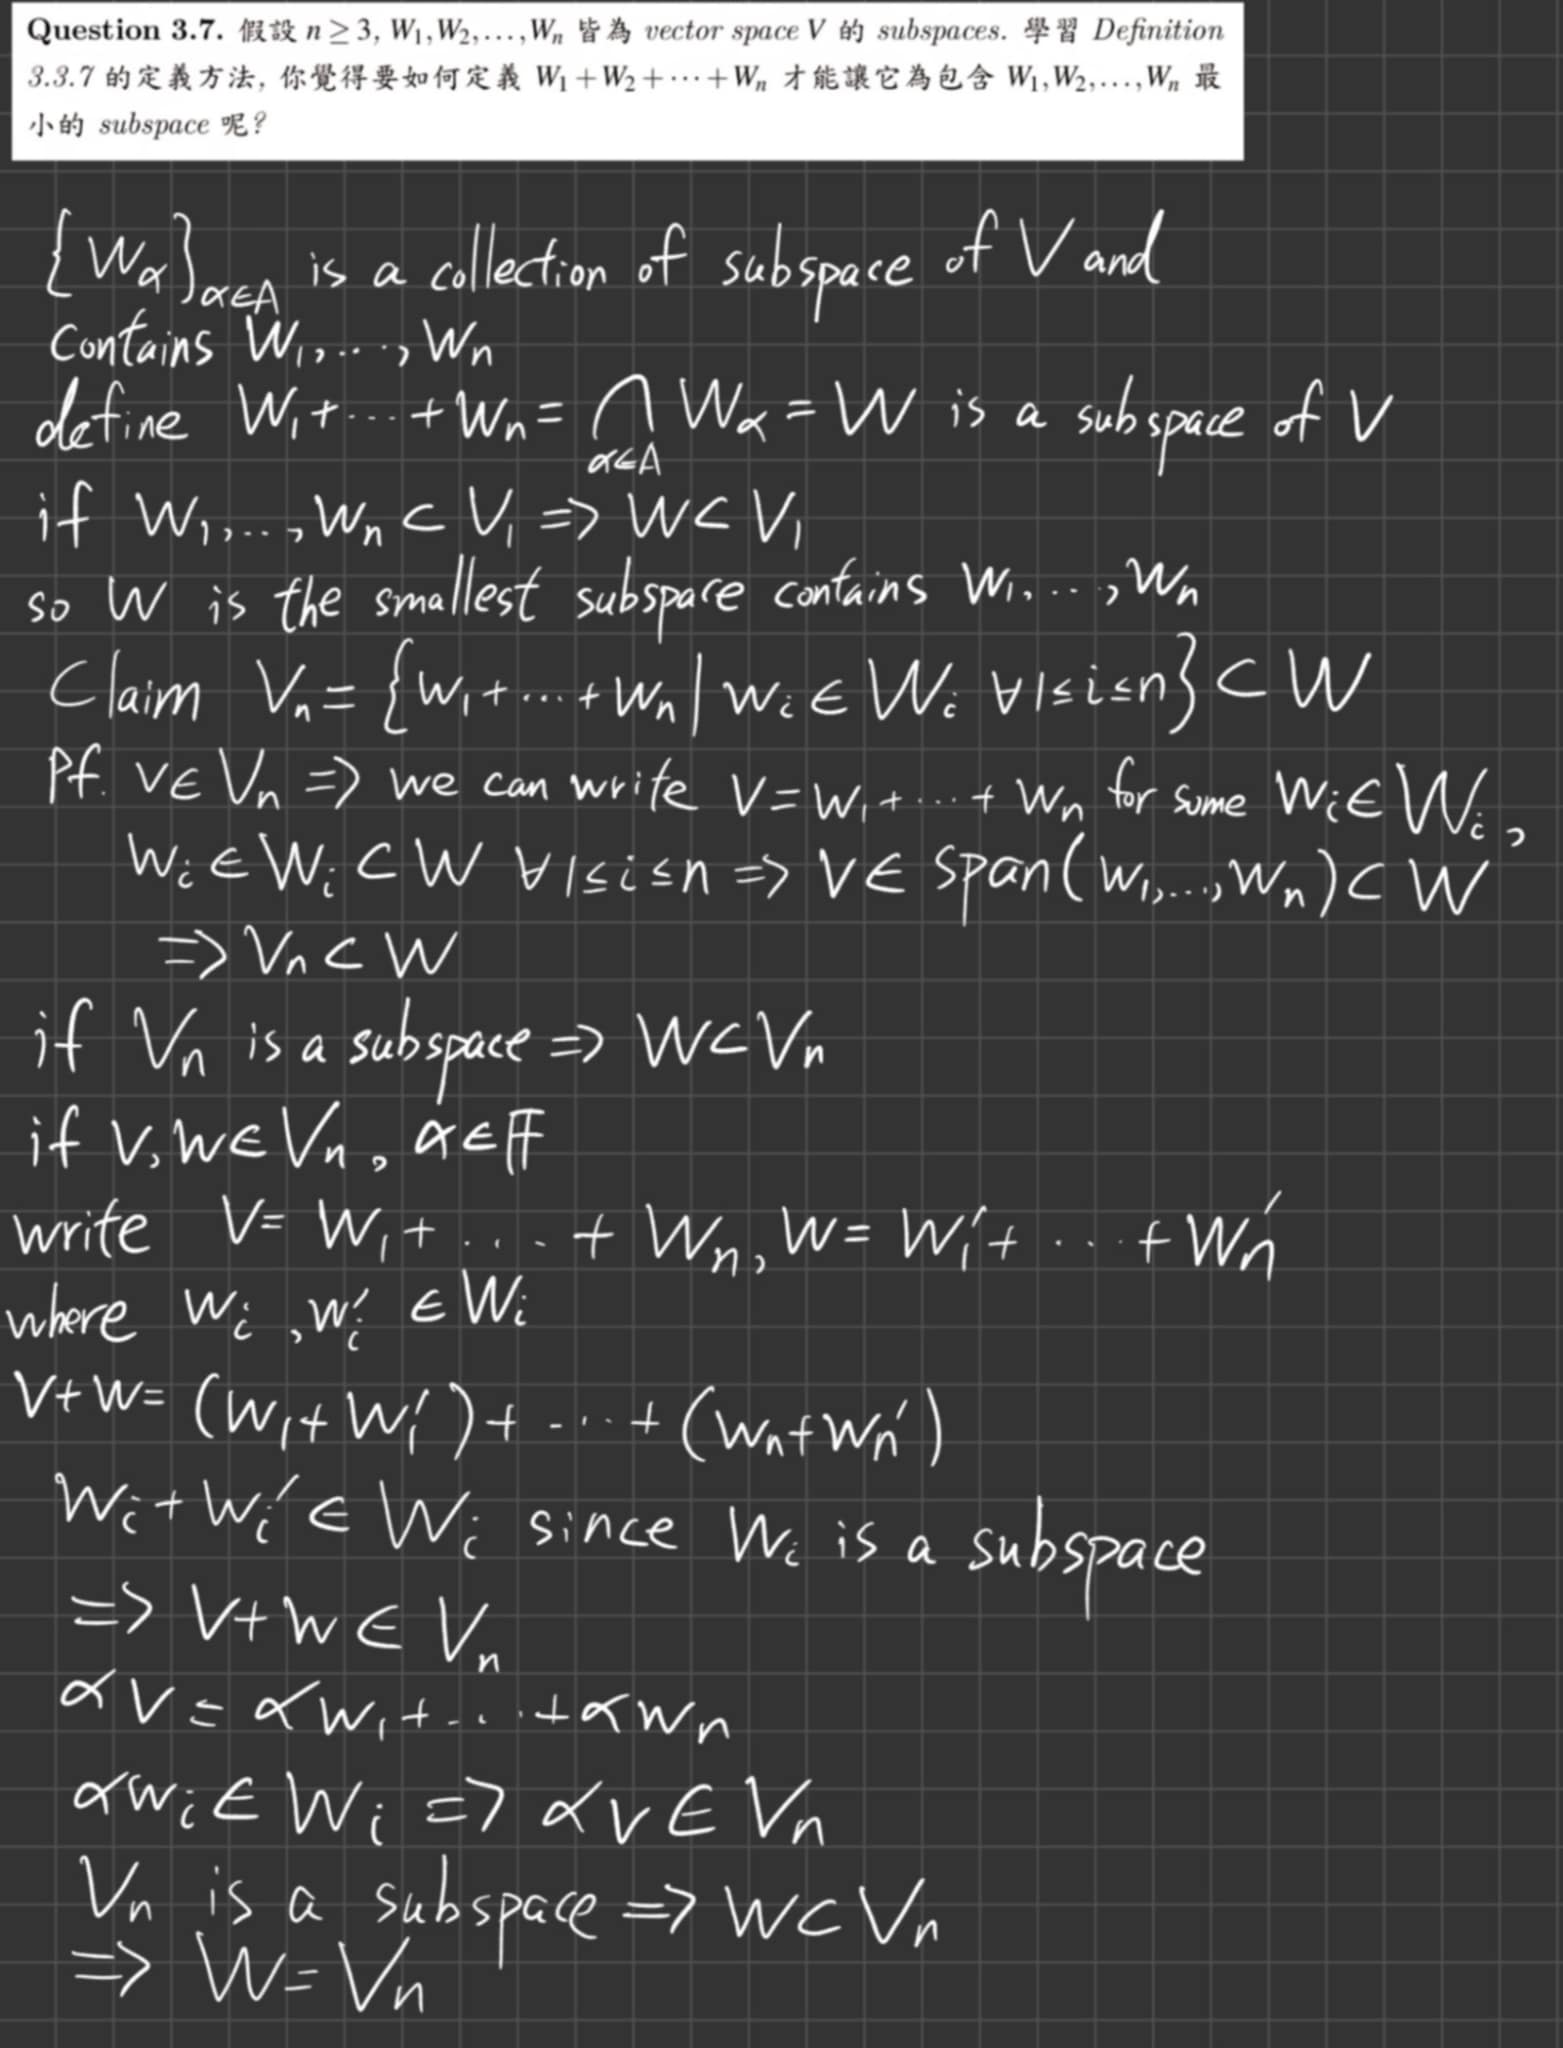 Question 3.7. 假設 n ≥ 3, W₁,W₂,...,Wₙ 皆為 vector space V 的 subspaces. 學習 Definition
3.3.7 的定義方法, 你覺得要如何定義 W₁+W₂+⋯+Wₙ 才能讓它為包含 W₁,W₂,...,Wₙ 最
小的 subspace 呢?
{Wα}α∈A is a collection of subspace of V and
contains W₁,...,Wₙ
define W₁+⋯+Wₙ = ⋂α∈A Wα = W is a subspace of V
if W₁,...,Wₙ ⊂ V₁ ⇒ W ⊂ V₁
so W is the smallest subspace contains W₁,...,Wₙ
Claim Vₙ = {w₁+⋯+wₙ | wᵢ ∈ Wᵢ ∀ 1≤i≤n} ⊂ W
Pf. v ∈ Vₙ ⇒ we can write v = w₁+⋯+wₙ for some wᵢ ∈ Wᵢ,
wᵢ ∈ Wᵢ ⊂ W ∀ 1≤i≤n ⇒ v ∈ span(w₁,...,wₙ) ⊂ W
⇒ Vₙ ⊂ W
if Vₙ is a subspace ⇒ W ⊂ Vₙ
if v, w ∈ Vₙ, α ∈ 𝔽
write v = w₁+⋯+wₙ, w = w₁′+⋯+wₙ′
where wᵢ, wᵢ′ ∈ Wᵢ
v+w = (w₁+w₁′)+⋯+(wₙ+wₙ′)
wᵢ+wᵢ′ ∈ Wᵢ since Wᵢ is a subspace
⇒ v+w ∈ Vₙ
αv = αw₁+⋯+αwₙ
αwᵢ ∈ Wᵢ ⇒ αv ∈ Vₙ
Vₙ is a subspace ⇒ W ⊂ Vₙ
⇒ W = Vₙ